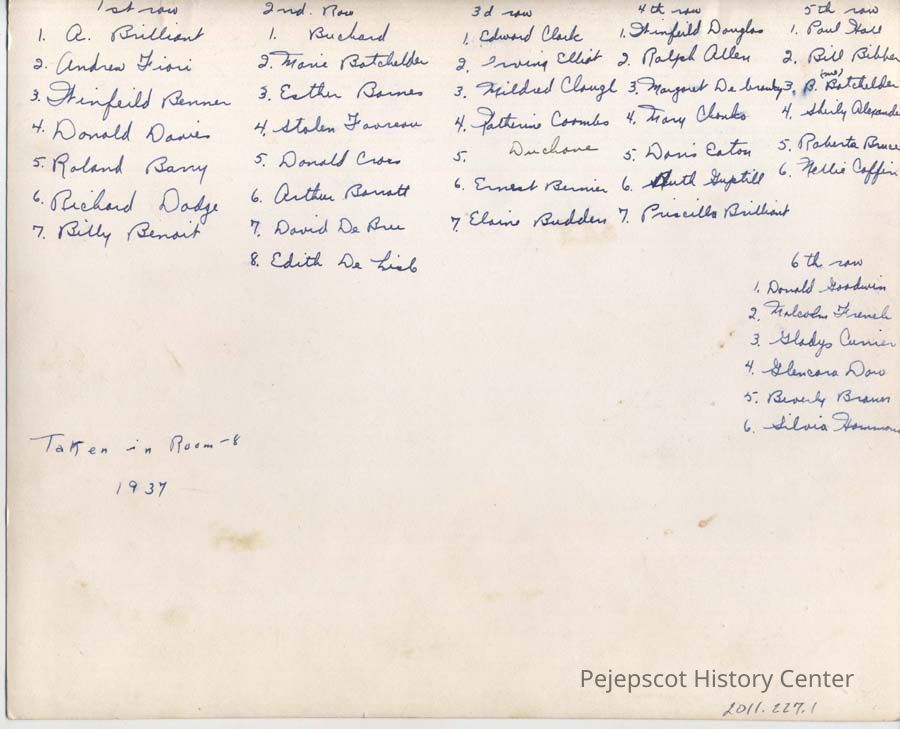 1st row
1. A. Brilliant
2. Andrew Fiori
3. Winfeild Benner
4. Donald Davis
5. Roland Barry
6. Richard Dodge
7. Billy Benoit
2nd. Row
1. Buchard
2. Marie Batchelder
3. Esther Barnes
4. Favreau
5. Donald Cross
6. Arthur Barratt
7. David De Bru
8. Edith De Lisle
3d row
1. Edward Clark
2. Irving Elliot
3. Mildred Clough
4. Katherine Coombs
5. Duchane
6. Ernest Bernier
7. Elaine Budden
4th row
1. Winfeild Douglas
2. Ralph Allen
3. Margaret
4. Mary Clonks
5. Doris Eaton
6. Ruth Guptill
7. Priscilla Brilliant
5th row
1. Paul Hall
2. Bill Bibber
(me)
3. B. Batchelder
4. Shirly Alexande
5. Roberta Bruce
6. Nellie Coffin
6th row
1. Donald Goodwin
2. Malcolm French
3. Gladys Currier
4. Glencora Dow
5. Beverly Brawn
6. Silvia Hammon
Taken in Room-8
1937
Pejepscot History Center
2011.227.1